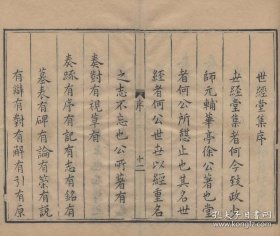 世經堂集序
世經堂集者何今致政
師元輔華亭徐公著也堂
者何公所憩止也其名世
經者何公世以經重名
之志不忘也公所著有
奏對有視草有
奏疏有序有記有志有銘有
墓表有碑有論有策有説
有辯有對有解有引有原
序
十二